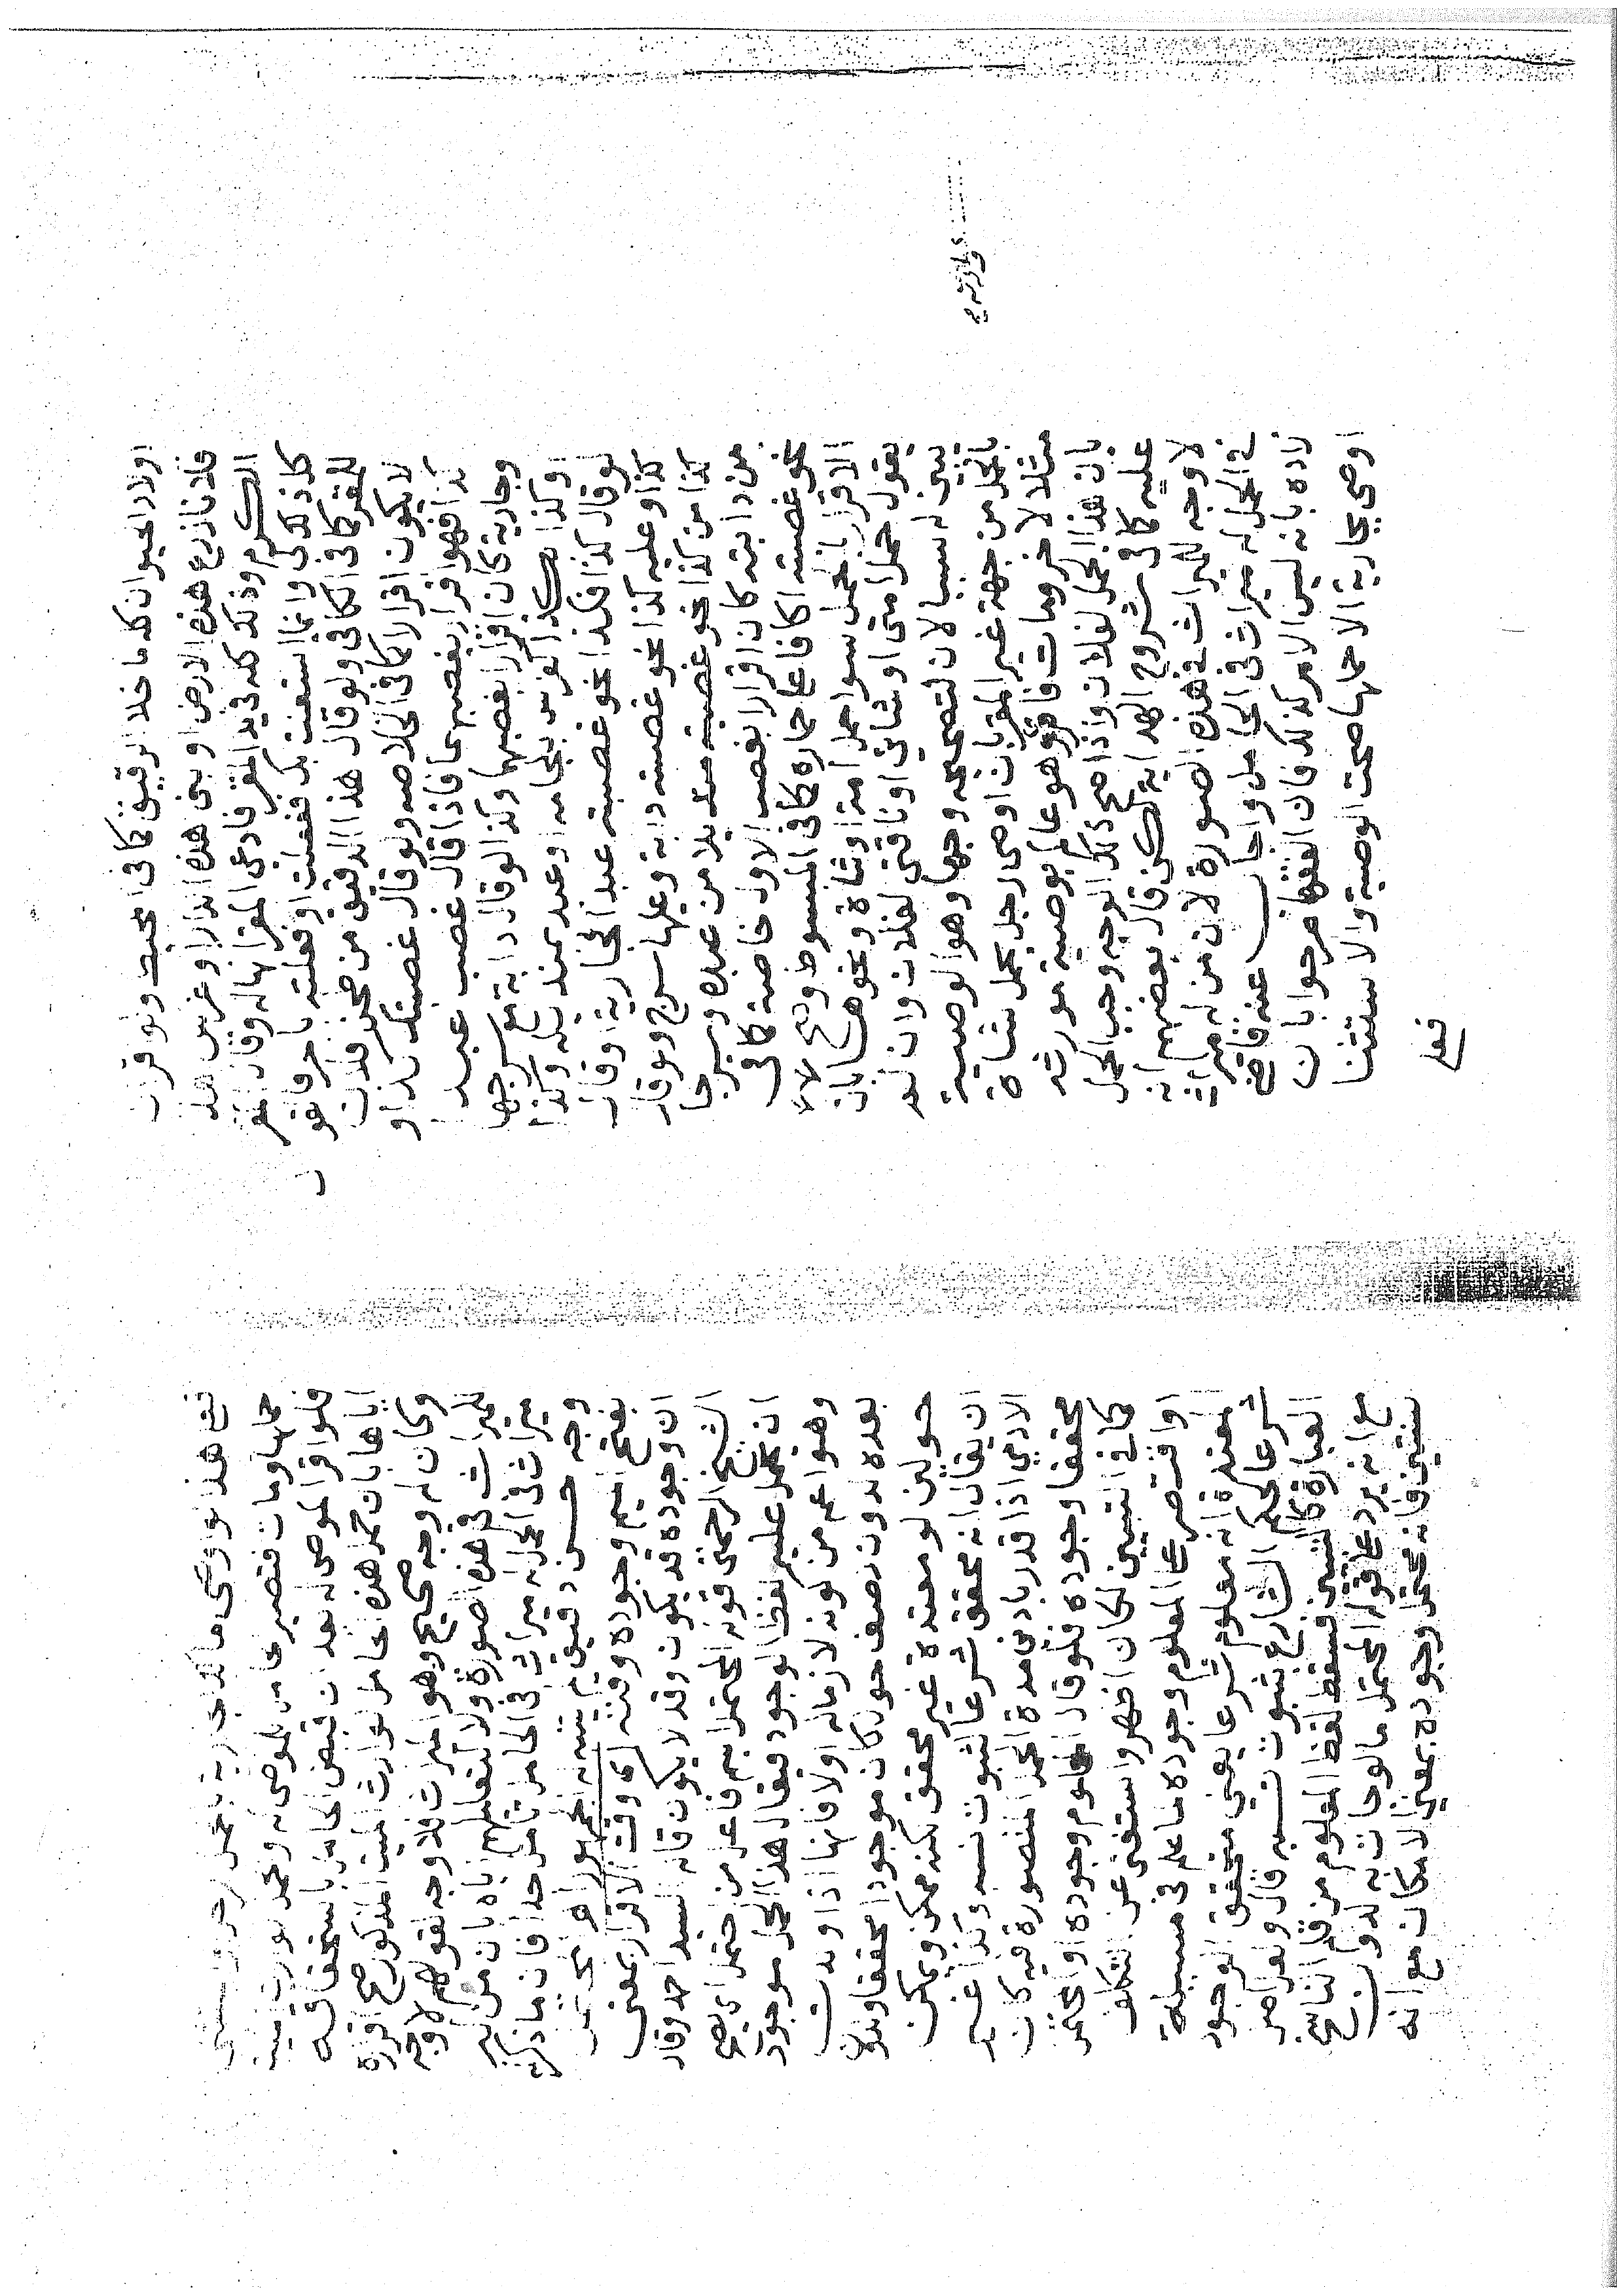 اولاد الحيوان كله ما خلا الرقيق كما في المحيط ولو قال
فلانا زرع هذه الارض او بنى هذه الدار او غرس هذا
الكرم وذلك كله في يد المقر فادعى المقر انها له وقال المقر
كل ذلك لي وانما استعنت بك ففعلت او فعلته باجر فالقول
للمقر كما في الكافي ولو قال هذا الدقيق من طحن فلان
لا يكون اقرارا كما في الخلاصه ولو قال غصبتك كذا و
كذا فهو اقرار بغصبهما فاذا قال غصبت عبدا
وجارية كان اقرارا بغصبهما وكذا لو قال دابة مع سرجها
او كذا بكذا كفرس بلجامه او عبد بمنديله وكذا
لو قال كذا فكذا نحو غصبته عبدا فجارية او قال
كذا وعليه كذا نحو غصبته دابة وعليها سرج ولو قال
كذا من كذا نحو غصبته منديلا من عبده وسرجا
من دابته كان اقرارا بغصب الاول خاصة كما في
نحو غصبته اكافا على حماره كما في المبسوط وصح
الاقرار بالحمل سوا حمل امة او شاة ونحوهما بان
يقول حمل امتي او شاتي او ناقتي لفلان وان لم
يبين له سببا لان لتصحيحه وجها وهو الوصية
بالحمل من جهة غير المقر بان اوصى رجل بحمل شاة
مثلا لاخر ومات فاقر وهو عالم بوصية مورثه
بان هذا الحمل لفلان واذا صح ذلك الوجه وجب الحمل
عليه كما في شروح الهداية لكن قال بعضهم انه
لا وجه للميراث في هذه الصورة لان من له ميراث
في الحمل له ميراث في الحامل واجاب عنه قاضي
زاده بانه ليس الامر كذلك فان الفقها صرحوا بان
اوصي بجارية الا حملها صحت الوصية والاستثنا
فعلى
لوارثه صح
فعلى هذا لو اوصى مالك جارية بالحمل لرجل
حملها ومات فتصير الحامل للموصى له والحمل لورثة الميت
فلو اقر الموصى له بعد ان قبض الحامل باستحقاقه
اياها بان حمل هذه الحامل لوارث الميت المذكور صح اقراره
وكان له وجه صحيح وهو الميراث فلا وجه لقولهم لا وجه
للميراث في هذه الصورة ولا لتعليلهم اياه بان من له
ميراث في الحمل له ميراث في الحامل تامل جدا فان ما ذكرته
وجه حسن دقيق لم يتنبه له الجمهور
بفتح الميم وجوده وقته اي وقت الاقرار بمعنى
ان وجوده قد يكون وقد لا يكون قاله السيد احمد وقال
الشيخ الرحمتي قوله المحتمل اسم فاعل من احتمل اي يصح
ان يحمل عليه لفظ الوجود فيقال هذا الحمل موجود
وهو اعم من كونه لازما له اولا فانها اذا ولدت
بعده لدون نصف حول كان موجودا محققا ولاقل
حولين لو معتدة غير محقق لكنه ممكن ويمكن
ان يقال انه محقق شرعا لثبوت نسبه وكذا غير
الادمي اذا قدر بادنى مدة الحمل المتصورة فيه كان
محققا وجوده فلو قال المعلوم وجوده او المحتمل
كما في التبيين لكان اظهر واستغنى عن التكلف
او اقتصر على المعلوم وجوده ما علم في مسيلة
المعتدة انه معلوم شرعا يعني متحقق الوجود
شرعا لحكم الشارع بثبوت نسبه قال ولعل اصل
العبارة كالتبيين فسقط لفظ المعلوم من قلم الناسخ
مع انه يرد على قوله المحتمل ما لو جات به لدون
سنتين فانه محتمل وجوده بمعنى الامكان مع انه